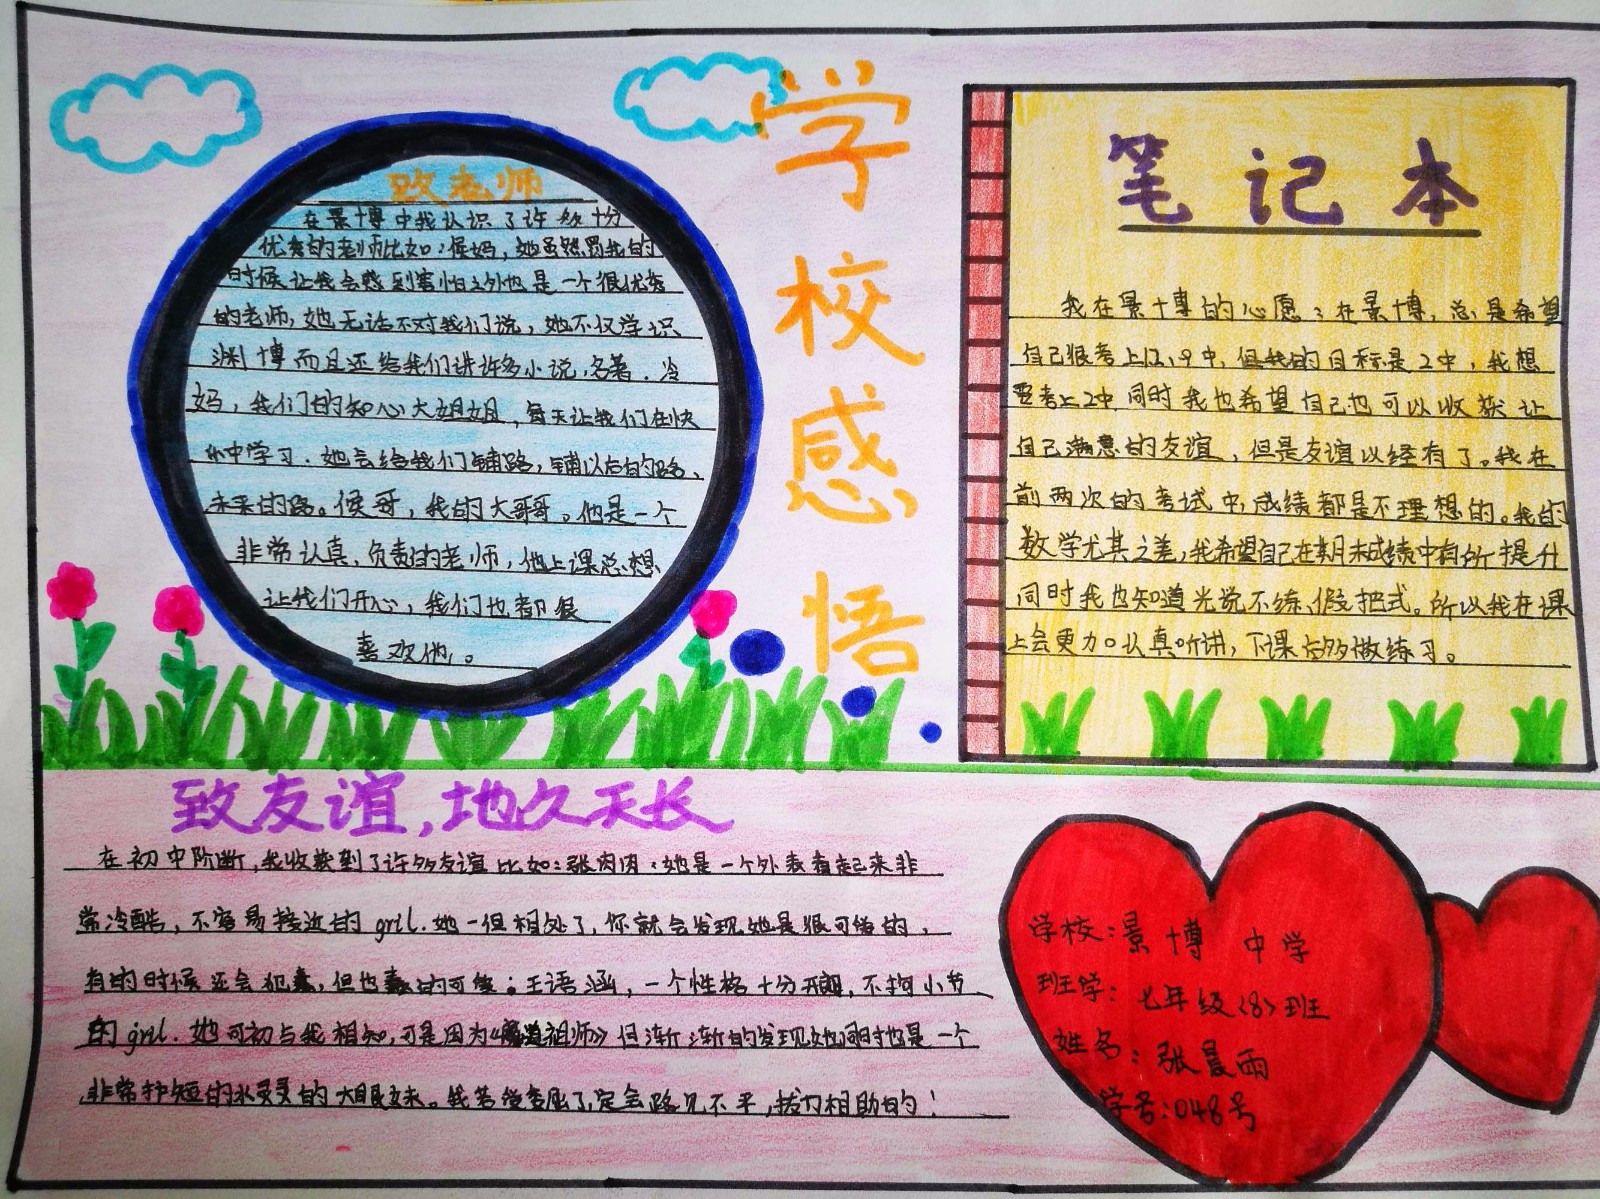 学校感悟
致老师
在景博中我认识了许多十分
优秀的老师比如:侯妈,她虽然骂我的
时候让我会感到害怕之外也是一个很优秀
的老师,她无话不对我们说,她不仅学识
渊博而且还给我们讲许多小说,名著.冷
妈,我们的知心大姐姐,每天让我们在快
中学习.她会给我们铺路,铺以后的路、
未来的路。侯哥,我的大哥哥。他是一个
非常认真、负责的老师,他上课总想
让我们开心,我们也都很
喜欢他。
笔记本
我在景博的心愿:在景博,总是希望
自己很考上1.2.9中,但我的目标是2中,我想
要考上2中同时我也希望自己也可以收获让
自己满意的友谊,但是友谊以经有了。我在
前两次的考试中,成绩都是不理想的。我的
数学尤其之差,我希望自己在期末成绩中有所提升
同时我也知道光说不练,假把式。所以我在课
上会更加认真听讲,下课后多做练习。
致友谊,地久天长
在初中阶断,我收获到了许多友谊比如:张肉肉:她是一个外表看起来非
常冷酷,不容易接近的gril.她一但相处了,你就会发现她是很可爱的,
有的时候还会犯蠢,但也蠢的可爱;王语涵,一个性格十分开朗,不拘小节
的gril.她可初与我相知,可是因为《魔道祖师》但渐渐的发现她同时也是一个
非常护短的水灵灵的大眼妹。我若受委屈了,定会路见不平,拔刀相助的!
学校:景博中学
班学:七年级〈8〉班
姓名:张晨雨
学号:048号